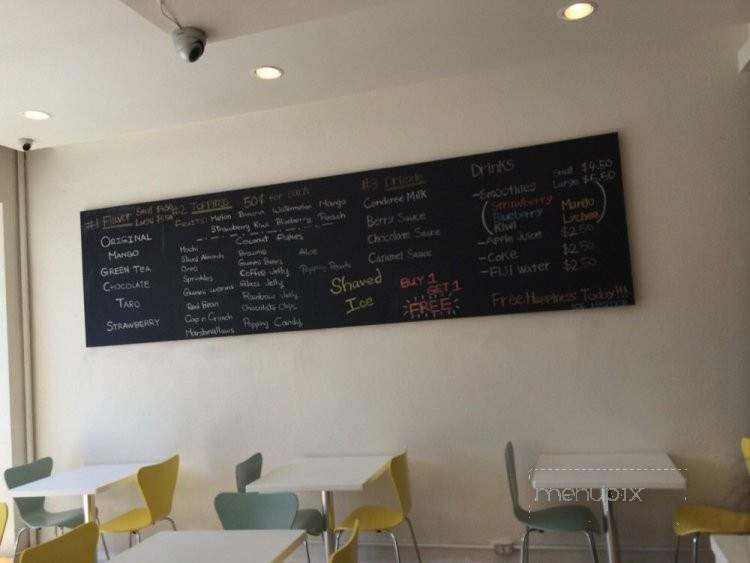 #1 Flavor Small
Large
ORIGINAL
MANGO
GREEN TEA
CHOCOLATE
TARO
STRAWBERRY
#2 Toppings 50¢ for each
FRUITS: Melon Banana Watermelon Mango
Strawberry Kiwi Blueberry Peach
Coconut Flakes
Mochi
Sliced Almonds
Oreo
Sprinkles
Gummi worms
Red Bean
Cap n Crunch
Marshmallows
Brownie
Gummi Bears
Coffee Jelly
Rainbow Jelly
Chocolate Chips
Popping Candy
Aloe
Popping Pearls
#3 Drizzle
Condense Milk
Berry Sauce
Chocolate Sauce
Caramel Sauce
Shaved
Ice
BUY 1
GET 1
FREE
Drinks
Small $4.50
Large $5.50
-Smoothies
Strawberry Mango
Blueberry Lychee
Kiwi
-Apple Juice $2.50
-Coke $2.50
-FIJI Water $2.50
Free Happiness Today!!!
menupix